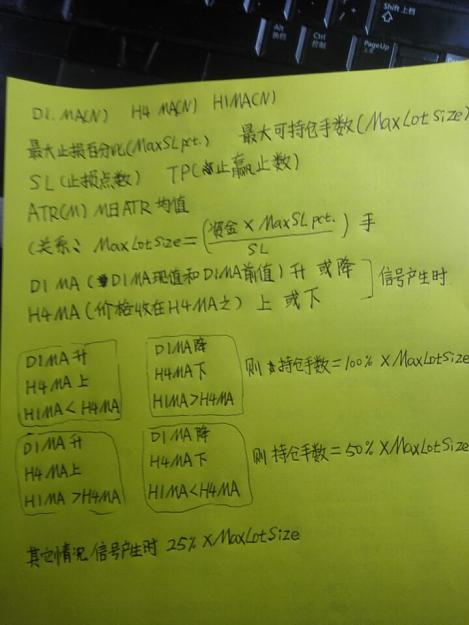 Shift 上档
Alt
换档
Ctrl
控制
PageUp
D1. MA(N) H4 MA(N) H1MA(N)
最大止损百分比(MaxSLpct.) 最大可持仓手数(MaxLotSize)
SL(止损点数) TP(止赢止数)
ATR(M) M日ATR均值
(关系: MaxLotSize=(资金×MaxSLpct./SL)手
D1 MA (D1MA现值和D1MA前值) 升 或降
H4MA (价格收在H4MA之) 上 或下
信号产生时
D1MA升
H4MA上
H1MA<H4MA
D1MA降
H4MA下
H1MA>H4MA
则持仓手数=100%×MaxLotSize
D1MA升
H4MA上
H1MA>H4MA
D1MA降
H4MA下
H1MA<H4MA
则持仓手数=50%×MaxLotSize
其它情况信号产生时 25%×MaxLotSize